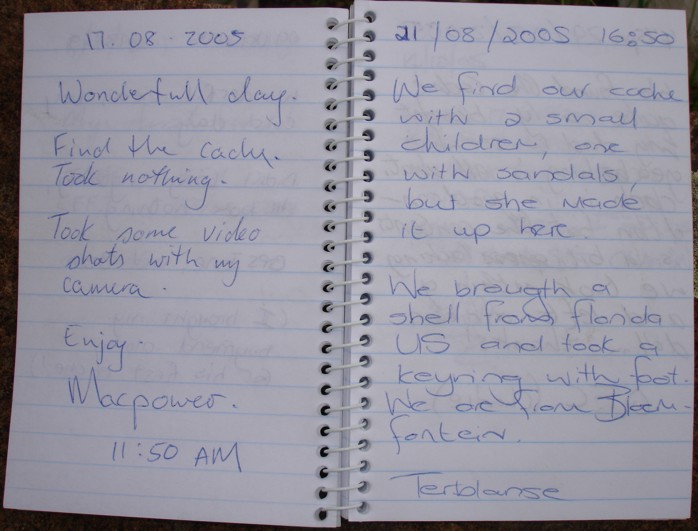 17.08.2005
Wonderfull day.
Find the cache.
Took nothing.
Took some video
shots with my
camera.
Enjoy
Macpower.
11:50 AM
21/08/2005 16:50
We find our cache
with 2 small
children, one
with sandals,
but she made
it up here.
We brougth a
shell from florida
US and took a
keyring with foot.
We are from Bloem-
fontein.
Terblanse